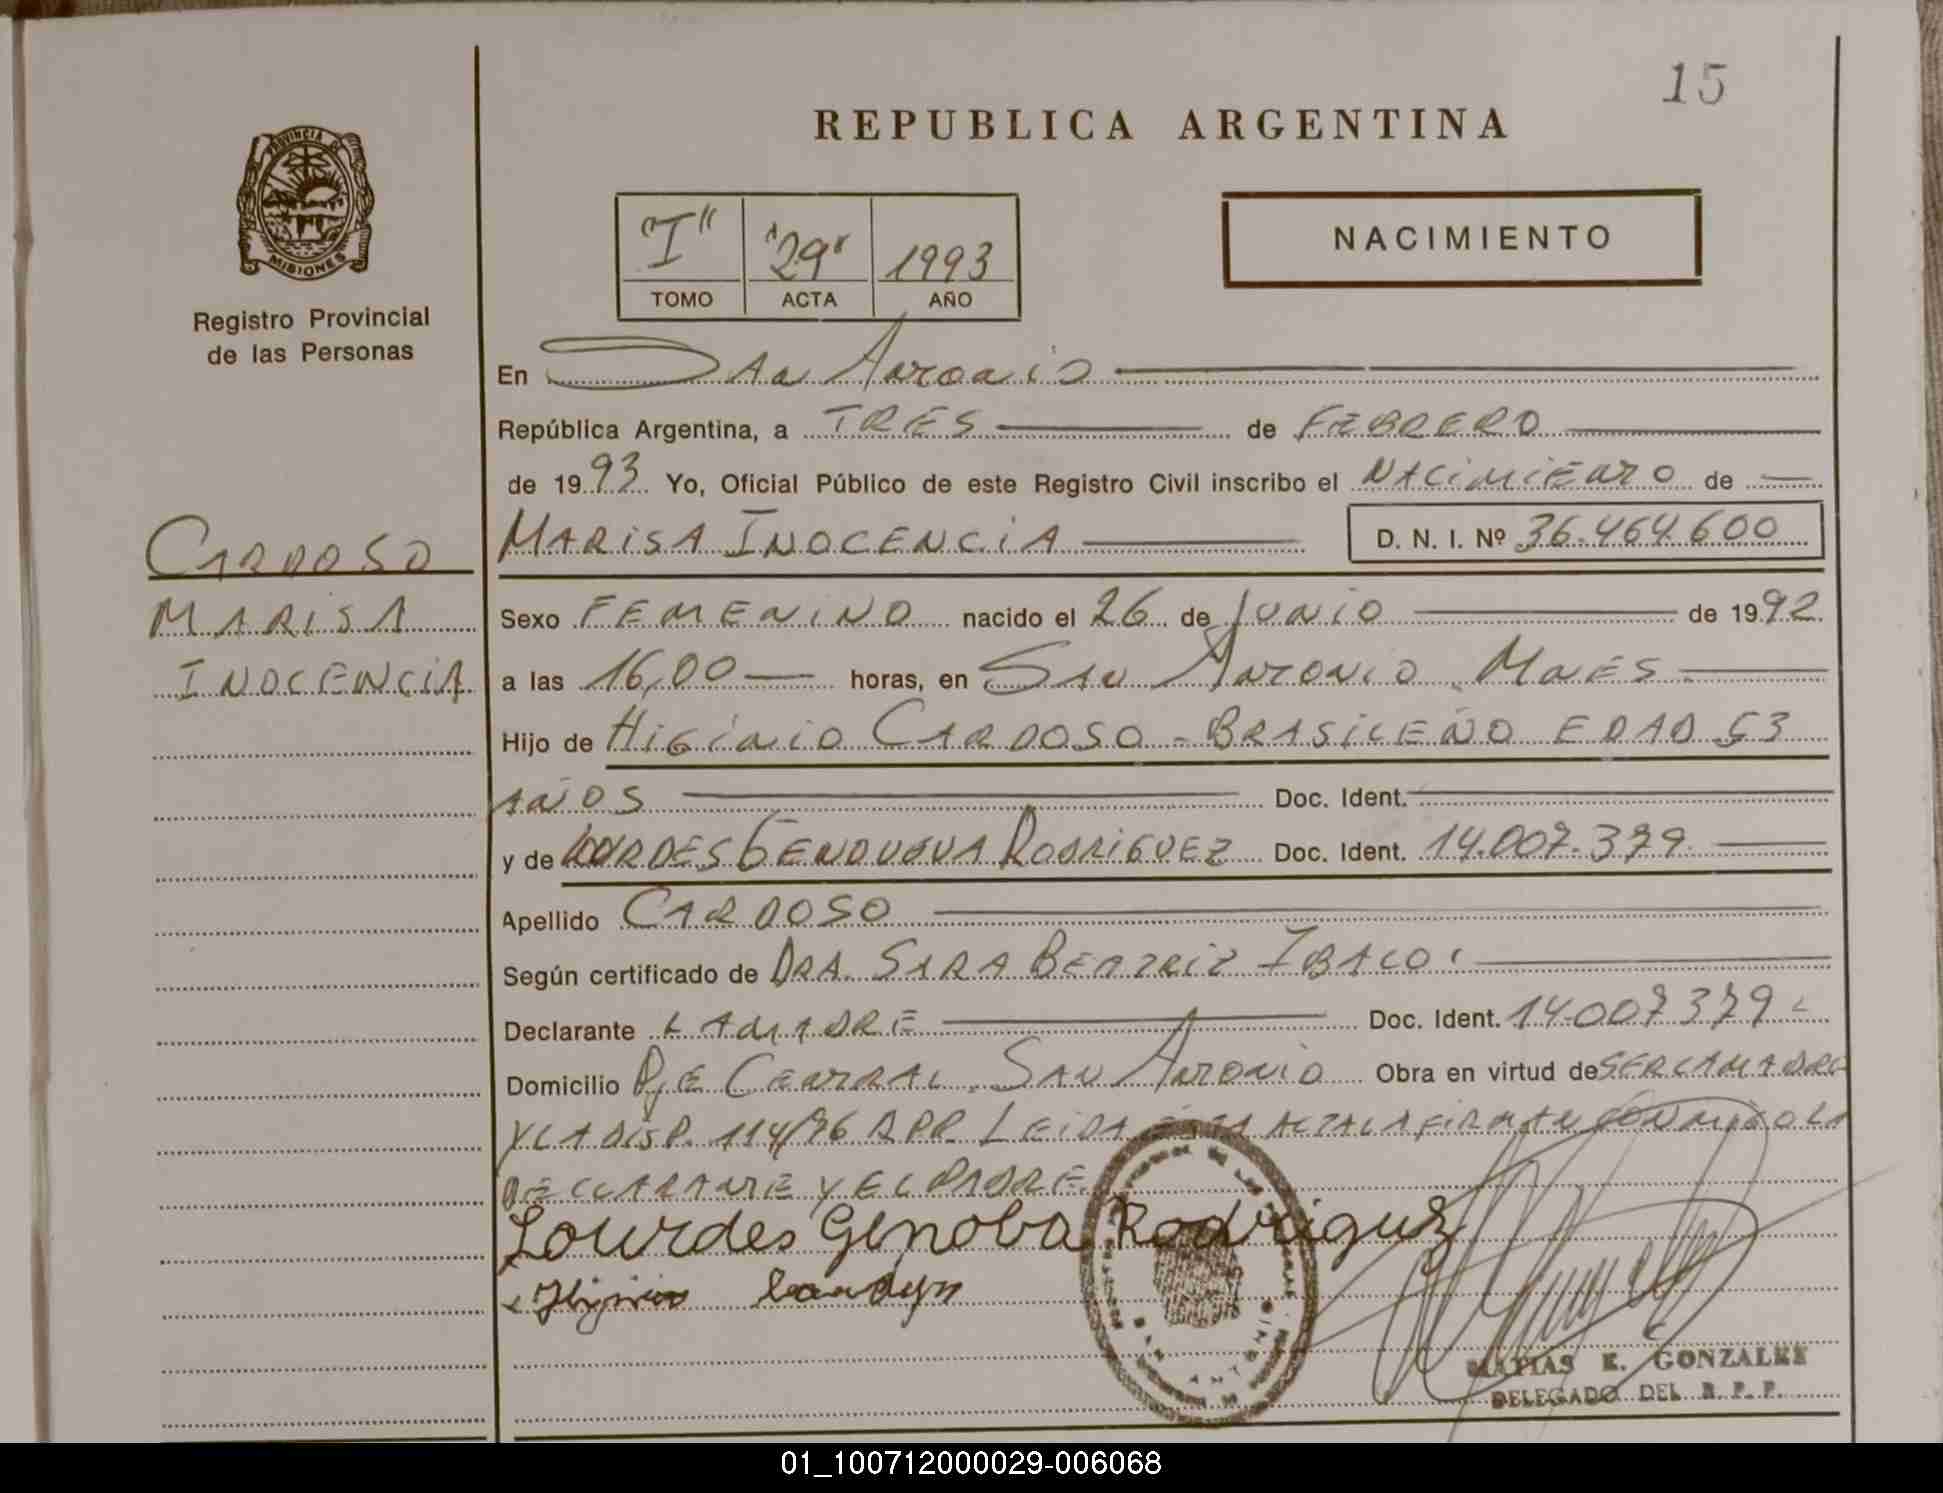 15
REPUBLICA ARGENTINA
PROVINCIA DE
MISIONES
Registro Provincial
de las Personas
"I" "29" 1993
TOMO ACTA AÑO
NACIMIENTO
En San Antonio
República Argentina, a TRES de FEBRERO
de 1993 Yo, Oficial Público de este Registro Civil inscribo el NACIMIENTO de
MARISA INOCENCIA D. N. I. Nº 36.464.600
CARDOSO
MARISA
INOCENCIA
Sexo FEMENINO nacido el 26 de JUNIO de 1992
a las 16,00 horas, en SAN ANTONIO MNES
Hijo de HIGINIO CARDOSO - BRASILEÑO EDAD 53
AÑOS Doc. Ident.
y de LOURDES RODRIGUEZ Doc. Ident. 14.007.379
Apellido CARDOSO
Según certificado de DRA. SARA BEATRIZ
Declarante LA MADRE Doc. Ident. 14.007379
Domicilio Pje CENTRAL SAN ANTONIO Obra en virtud de SER LA MADRE
Y LA DISP. 114/76 RPP. LEIDA ESTA ACTA LA FIRMAN CONMIGO LA
DECLARANTE Y EL PADRE
Lourdes Genoba Rodriguez
Higinio
MATIAS E. GONZALEZ
DELEGADO DEL R. P. P.
01_100712000029-006068